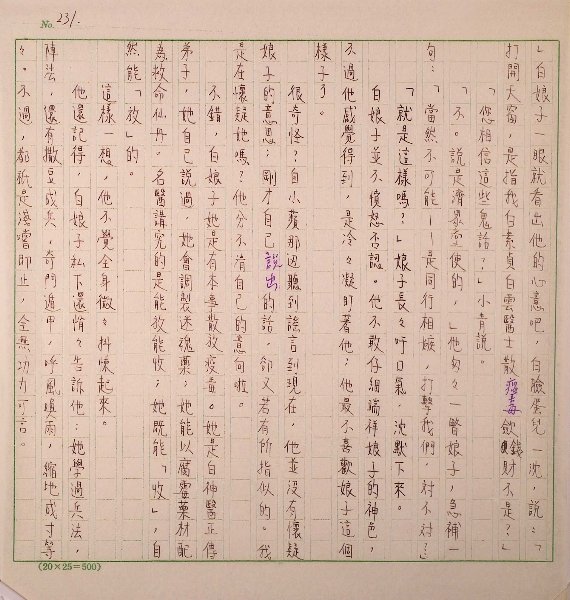 No. 231.
」白娘子一眼就看出他的心意吧,白臉蛋兒一沈,說:「
打開天窗,是指我白素貞白雲醫士散瘟毒斂錢財不是?」
「您相信這些鬼話?」小青說。
「不。說是濟眾堂使的,」他匆々一瞥娘子,急補一
句:「當然不可能——是同行相嫉,打擊我們,對不對?」
「就是這樣嗎?」娘子長々吁口氣,沈默下來。
白娘子並不憤怒否認。他不敢仔細端祥娘子的神色,
不過他感覺得到,是冷々凝盯著他;他最不喜歡娘子這個
樣子了。
很奇怪?自小薇那边聽到謠言到現在,他並沒有懷疑
娘子的意思;剛才自己說出的話,卻又若有所指似的。我
是在懷疑她嗎?他分不清自己的意向啦。
不錯,白娘子她是有本事散放疫毒。她是白神醫正傳
弟子,她自己說過,她會調製迷魂藥;她能以腐霉藥材配
為救命仙丹。名醫講究的是能放能收;她既能「收」,自
然能「放」的。
這樣一想,他不覺全身微々抖慄起來。
他還記得,白娘子私下還悄々告訴他:她學過兵法,
陣法,還有撒豆成兵,奇門遁甲,呼風喚雨,縮地成寸等
々。不過,都祇是淺嚐即止,全無功力可言。
(20×25=500)